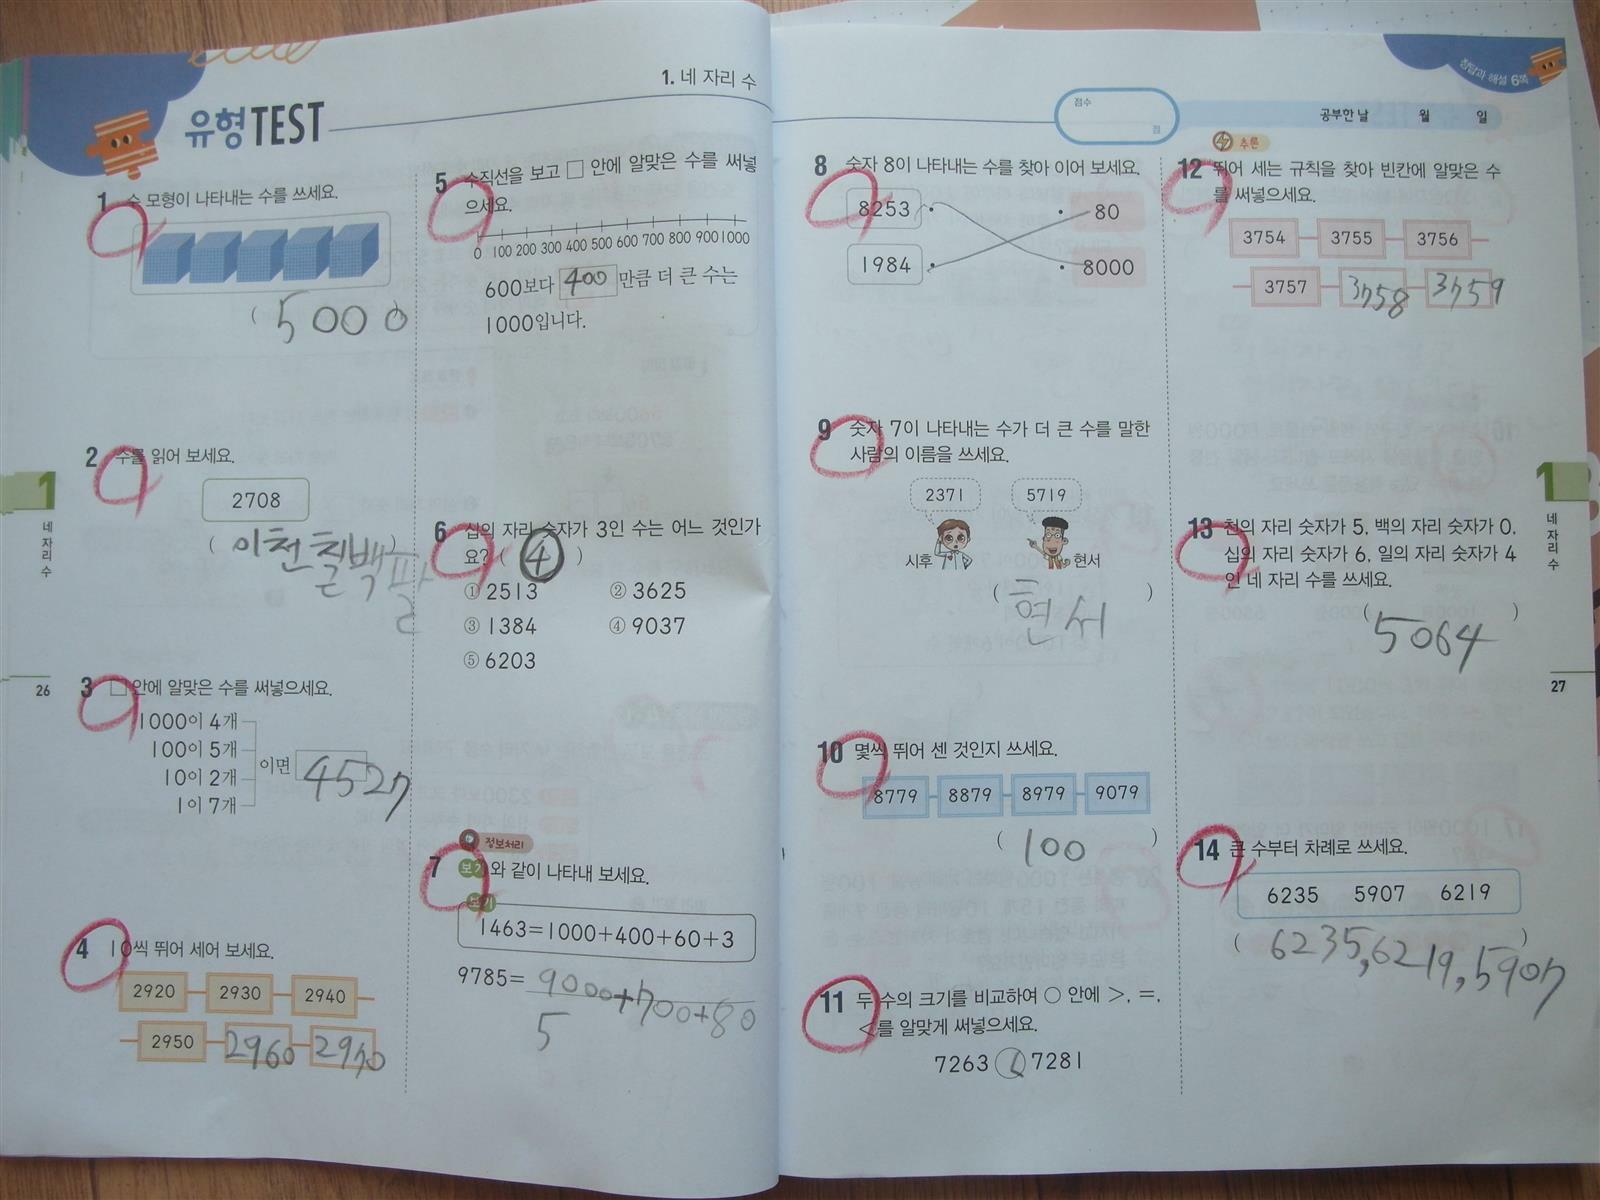 1. 네 자리 수
유형TEST
1 수 모형이 나타내는 수를 쓰세요.
( 5000 )
2 수를 읽어 보세요.
2708
( 이천칠백팔 )
3 □ 안에 알맞은 수를 써넣으세요.
1000이 4개
100이 5개
10이 2개
1이 7개
이면 4527
4 10씩 뛰어 세어 보세요.
2920 2930 2940
2950 2960 2970
5 수직선을 보고 □ 안에 알맞은 수를 써넣
으세요.
0 100 200 300 400 500 600 700 800 900 1000
600보다 400 만큼 더 큰 수는
1000입니다.
6 십의 자리 숫자가 3인 수는 어느 것인가
요? ( ④ )
① 2513 ② 3625
③ 1384 ④ 9037
⑤ 6203
정보처리
7 보기와 같이 나타내 보세요.
보기
1463=1000+400+60+3
9785= 9000+700+80
5
1
네 자리 수
26
정답과 해설 6쪽
점수
점
공부한 날 월 일
8 숫자 8이 나타내는 수를 찾아 이어 보세요.
8253 • • 80
1984 • • 8000
9 숫자 7이 나타내는 수가 더 큰 수를 말한
사람의 이름을 쓰세요.
2371 5719
시후 현서
( 현서 )
10 몇씩 뛰어 센 것인지 쓰세요.
8779 8879 8979 9079
( 100 )
11 두 수의 크기를 비교하여 ○ 안에 >, =,
<를 알맞게 써넣으세요.
7263 < 7281
추론
12 뛰어 세는 규칙을 찾아 빈칸에 알맞은 수
를 써넣으세요.
3754 3755 3756
3757 3758 3759
13 천의 자리 숫자가 5, 백의 자리 숫자가 0,
십의 자리 숫자가 6, 일의 자리 숫자가 4
인 네 자리 수를 쓰세요.
( 5064 )
14 큰 수부터 차례로 쓰세요.
6235 5907 6219
( 6235, 6219, 5907 )
1
네 자리 수
27